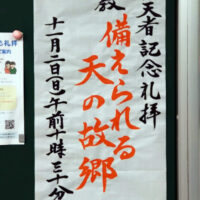 天者記念礼拝
教
備えられる
天の故郷
十一月二日(日)午前十時三十分
礼拝
ご案内